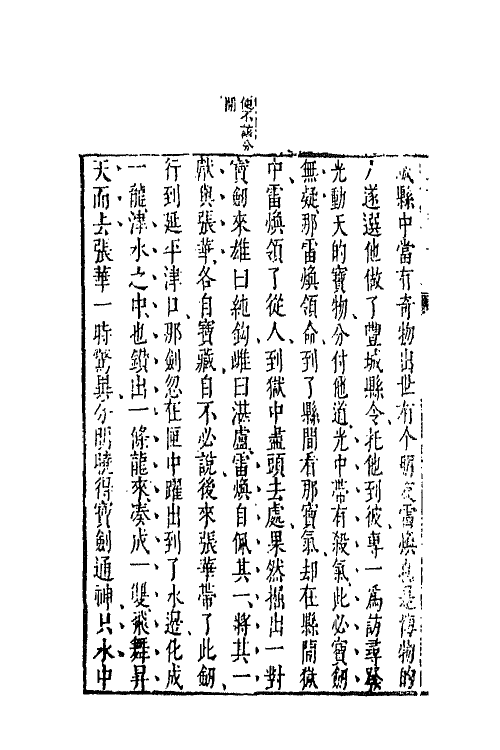 便不該分
開
城縣中當有奇物出世有个朋友雷煥是博物的
人遂選他做了豐城縣令托他到彼專一為訪尋
光動天的寶物分付他道光中帶有殺氣此必寶劔
無疑那雷煥領命到了縣間看那寶氣却在縣間獄
中雷煥領了從人到獄中盡頭去處果然掘出一對
寶劔來雄曰純鈎雌曰湛盧雷煥自佩其一將其一
獻與張華各自寶藏自不必說後來張華帶了此劔
行到延平津口那劔忽在匣中躍出到了水邊化成
一龍津水之中也鑽出一條龍來凑成一雙飛舞昇
天而去張華一時驚異分明曉得寶劔通神只水中